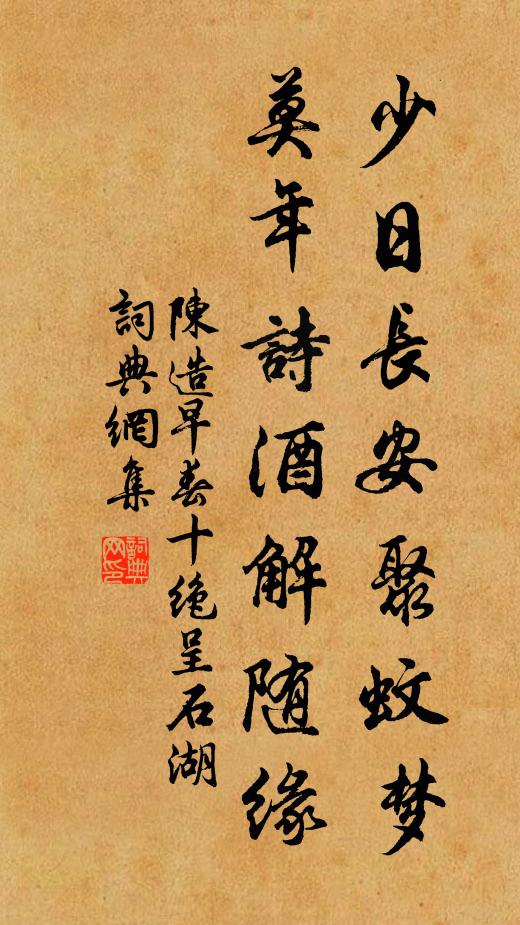 少日长安聚蚊梦
莫年詩酒解随缘
陳造早春十绝呈石湖
詞典網集
詞典网印